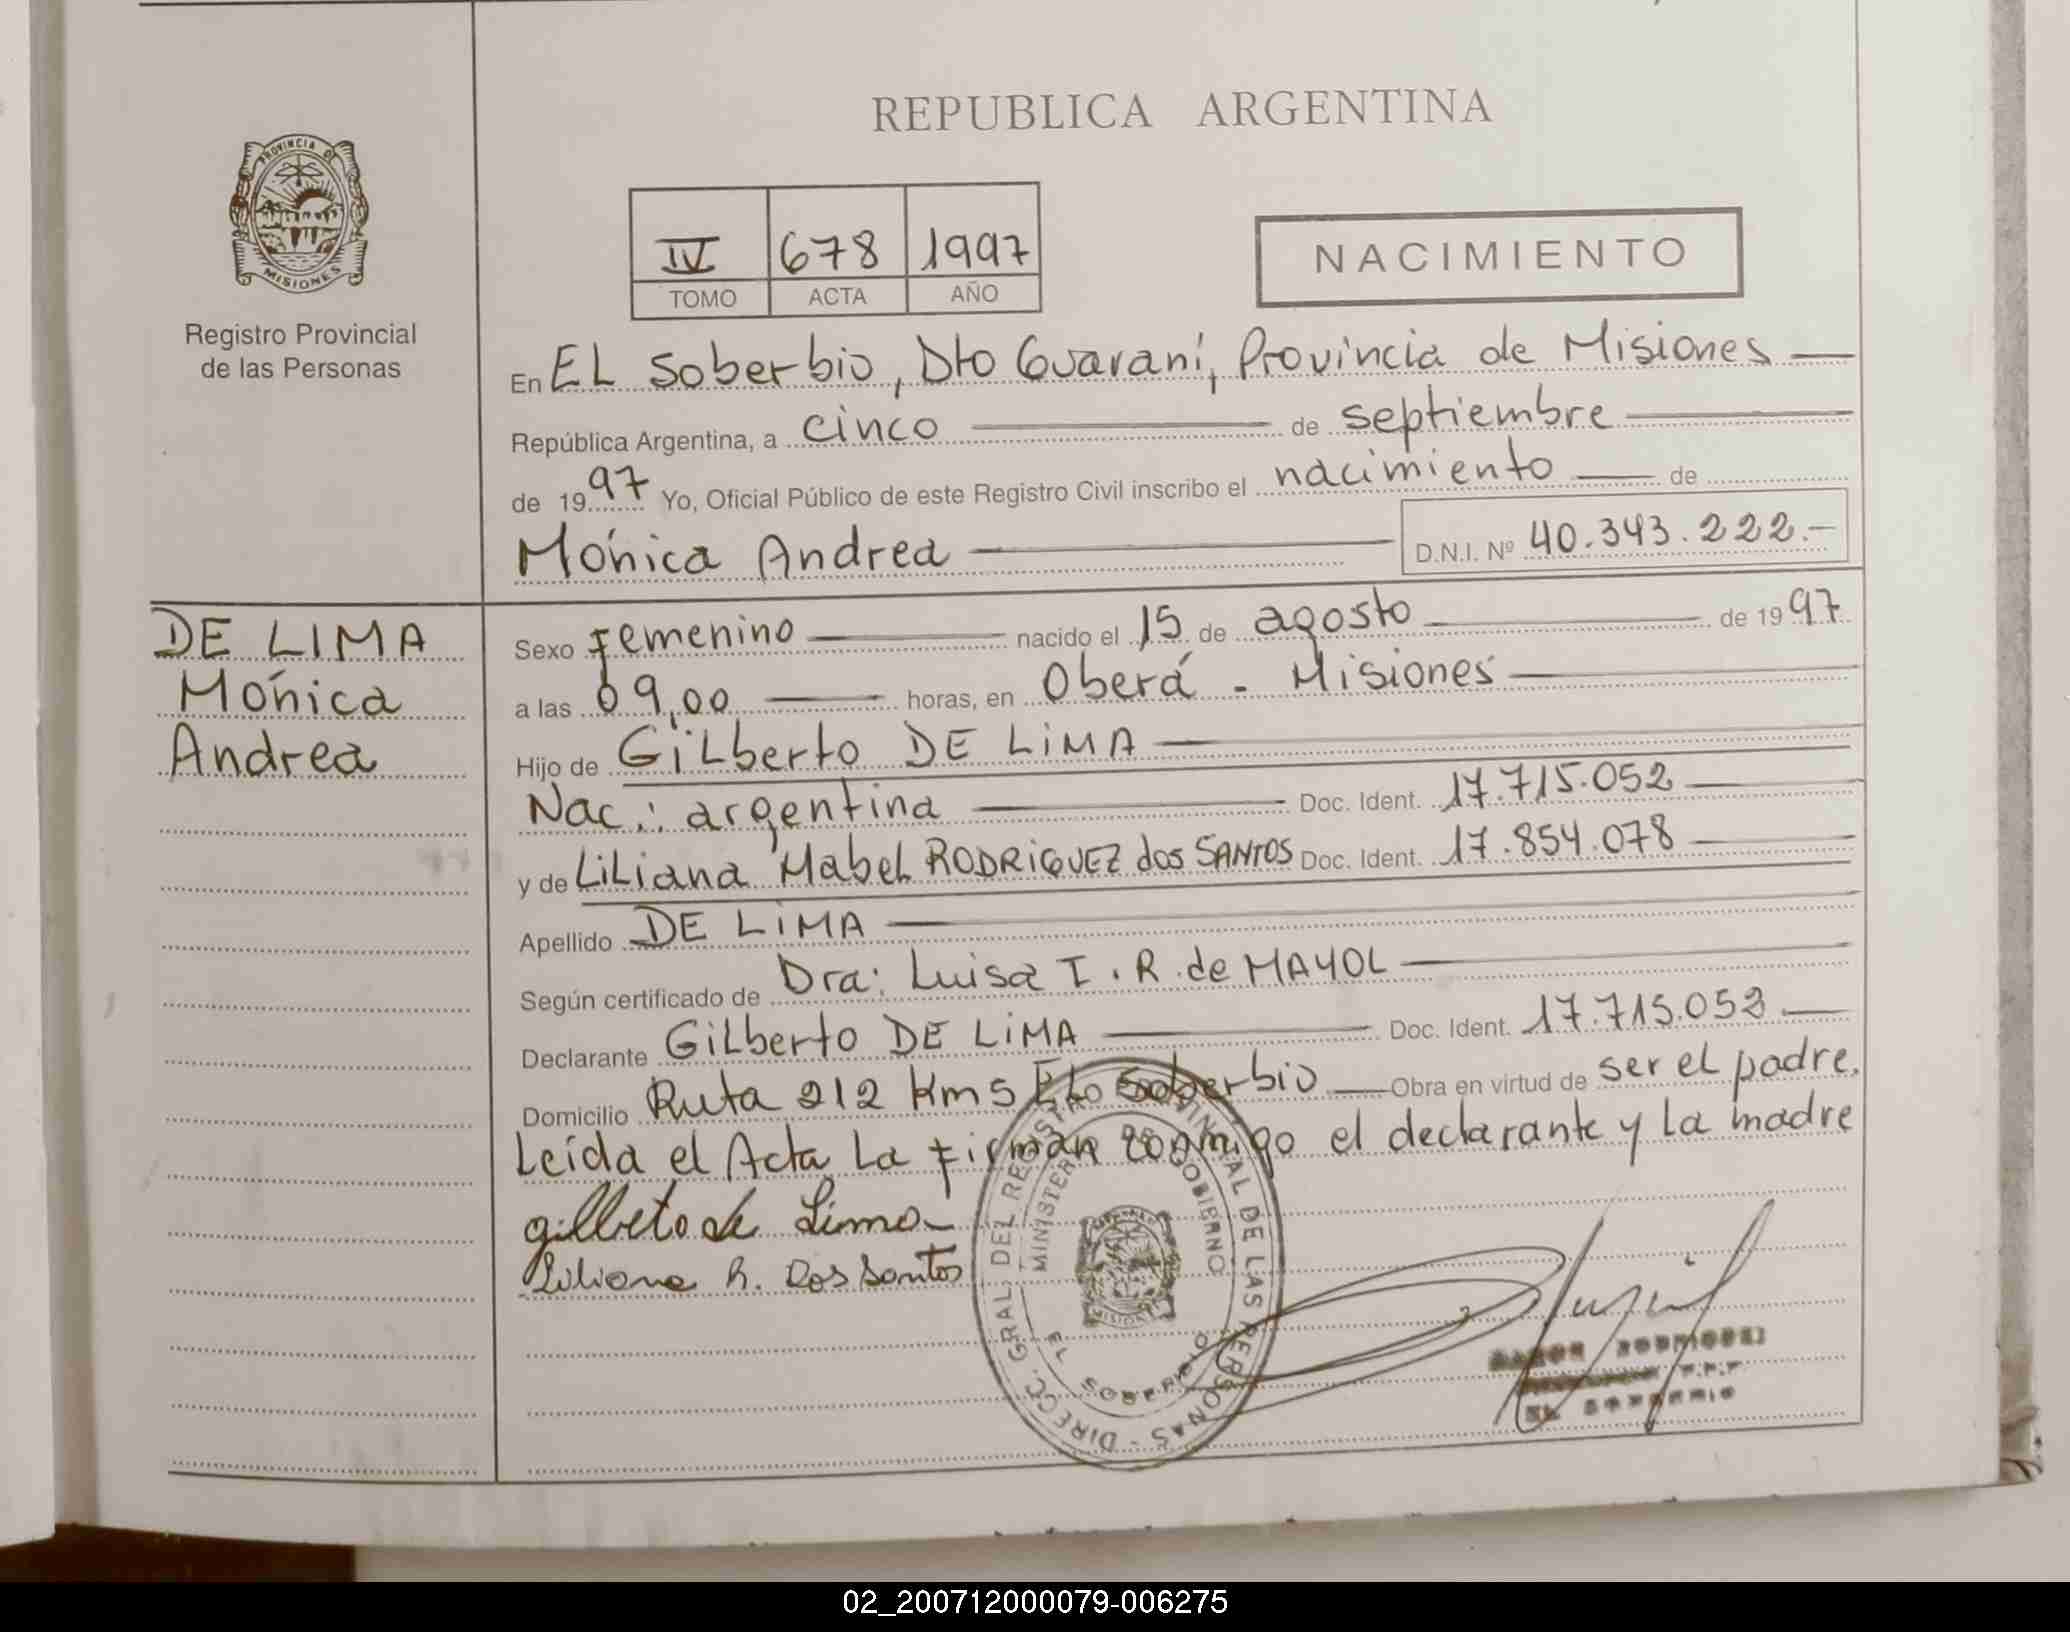 REPUBLICA ARGENTINA
PROVINCIA DE
MISIONES
Registro Provincial
de las Personas
IV 678 1997
TOMO ACTA AÑO
NACIMIENTO
En EL Soberbio, Dto Guaraní, Provincia de Misiones
República Argentina, a cinco de septiembre
de 1997 Yo, Oficial Público de este Registro Civil inscribo el nacimiento de
Mónica Andrea D.N.I. Nº 40.343.222.-
DE LIMA
Mónica
Andrea
Sexo Femenino nacido el 15 de agosto de 1997
a las 09,00 horas, en Oberá - Misiones
Hijo de GiLberto DE LiMA
Nac.: argentina Doc. Ident. 17.715.052
y de LiLiana Mabel RODRiGUEZ dos SANTOS Doc. Ident. 17.854.078
Apellido DE LiMA
Según certificado de Dra: Luisa I. R. de MAYOL
Declarante GiLberto DE LiMA Doc. Ident. 17.715.052
Domicilio Ruta 212 Km 5 Soberbio Obra en virtud de ser el padre.
Leída el Acta La Firman conmigo el declarante y La madre
gilberto de Lima
Liliana R. Dos Santos
DIRECC. GRAL. DEL REGISTRO PROVINCIAL DE LAS PERSONAS
MINISTERIO DE GOBIERNO
EL SOBERBIO
RODRIGUEZ
EL SOBERBIO
02_200712000079-006275